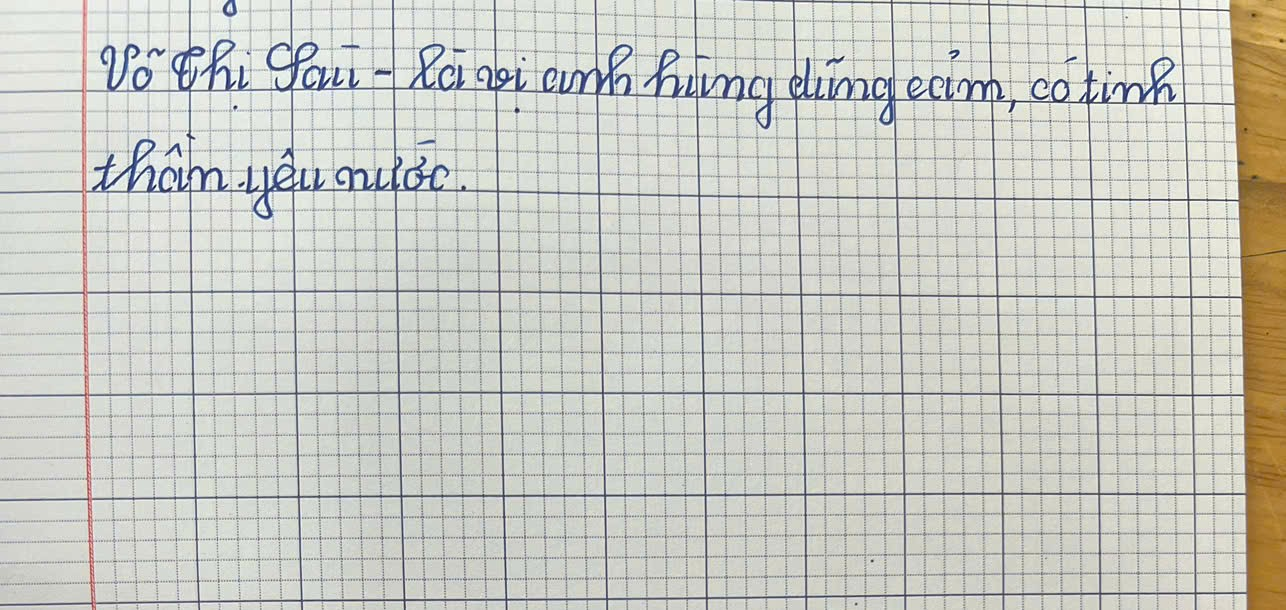 Võ Thị Sáu - Là nơi anh hùng dũng cảm, có tinh
thần yêu nước.